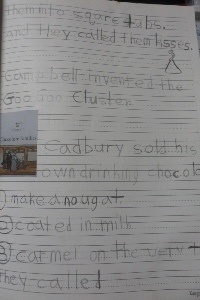 them into sqare tubs.
and they called them kisses.
Campbell invented the
Goo Goo Cluster
Cadbury sold his
own drinking chocola
① make a nougat
② coated in milk
③ carmel on the very t
they called